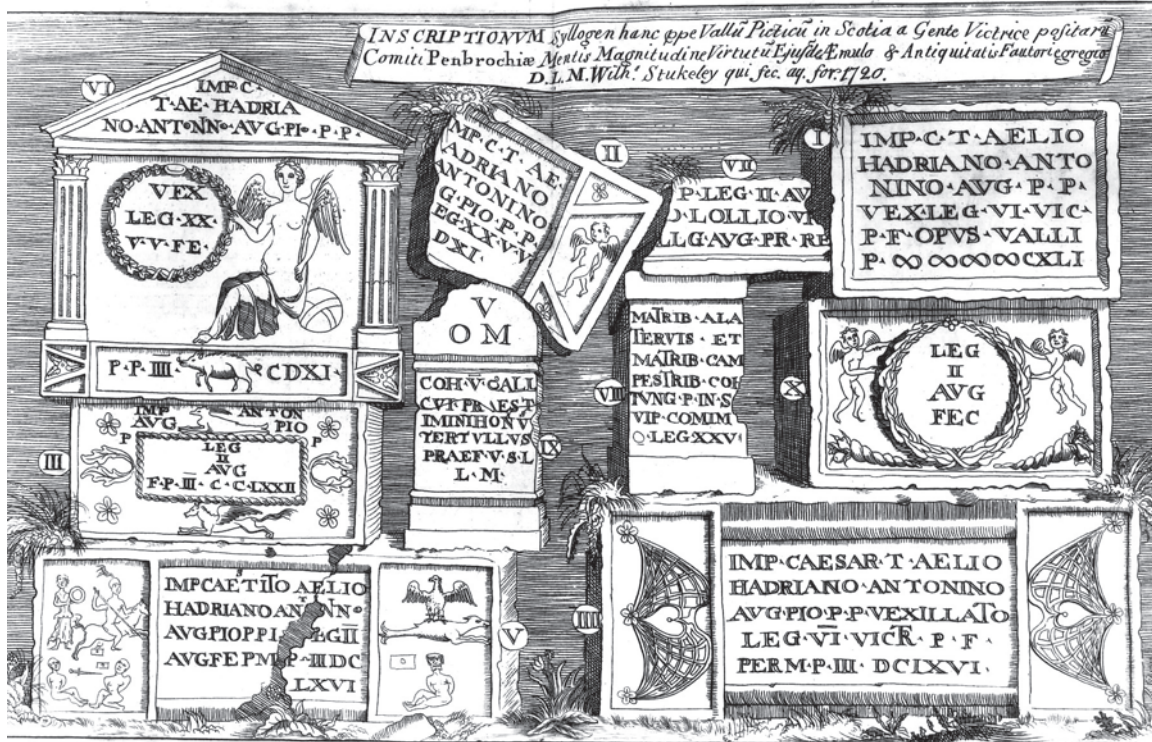 INSCRIPTIONVM Syllogen hanc ꝓpe Vallũ Picticũ in Scotia a Gente Victrice positarũ
Comiti Penbrochiæ Mentis Magnitudine Virtutũ Ejusdẽ Æmulo & Antiquitatis Fautori egregio
D. L. M. Wilhs. Stukeley qui fec. aq. for. 1720.
VI
IMP·C·
T·AE·HADRIA
NO·ANTONNO·AVG·PIO·P·P·
VEX
LEG·XX·
V·V·FE·
P·P·IIII·
·CDXI·
II
MP·C·T·AE·
ADRIANO
ANTONINO
G·PIO·P·P·
EG·XX·V·V
DXI
VII
P·LEG·II·AV
LOLLIO·V
G·AVG·PR·RE
I
IMP·C·T·AELIO
HADRIANO·ANTO
NINO·AVG·P·P·
VEX·LEG·VI·VIC·
P·F·OPVS·VALLI
P·∞∞∞∞CXLI
III
IMP ANTON
AVG PIO
P P
LEG
II
AVG
F·P·III·C·C·LXXII
V
OM
COH·V·GALL
CVI·PRAEST
IMINIHONV
TERTVLLVS
PRAEF·V·S·L
L·M·
IX
VIII
MATRIB·ALA
TERVIS·ET
MATRIB·CAM
PESTRIB·COH
TVNG·P·IN·S
VIP·COMIM
LEG·XXV
X
LEG
II
AVG
FEC
S
IMPCAETITO AELIO
HADRIANO
AVGPIOPP
AVGFEPM P·IIIDC
LXVI
V
IIII
IMP·CAESAR·T·AELIO
HADRIANO·ANTONINO
AVG·PIO·P·P·VEXILLATO
LEG·VI·VICR·P·F·
PER·M·P·III·DCLXVI·